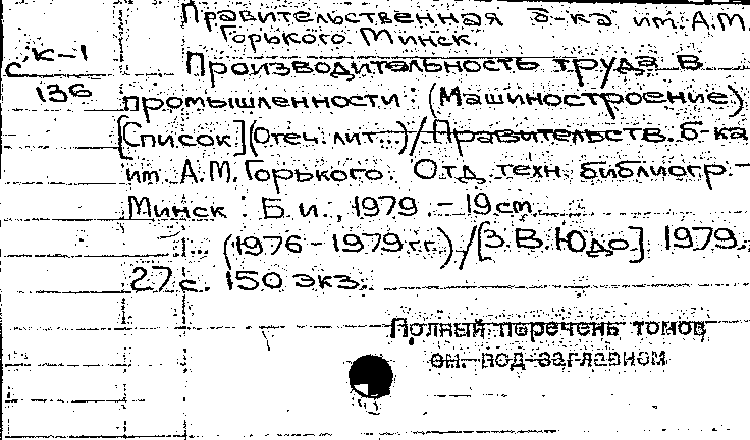 Правительственная б-ка им. А.М.
Горького. Минск.
С К-1
136
Производительность труда в
промышленности: (Машиностроение)
[Список] (Отеч. лит...)/Правительств. б-ка
им. А.М. Горького. Отд. техн. библиогр. –
Минск : Б. и., 1979. – 19 cm.
... (1976 – 1979 гг.) / [З.В. Юдо] 1979.
27 с. 150 экз.
Полный перечень томов
см. под заглавием